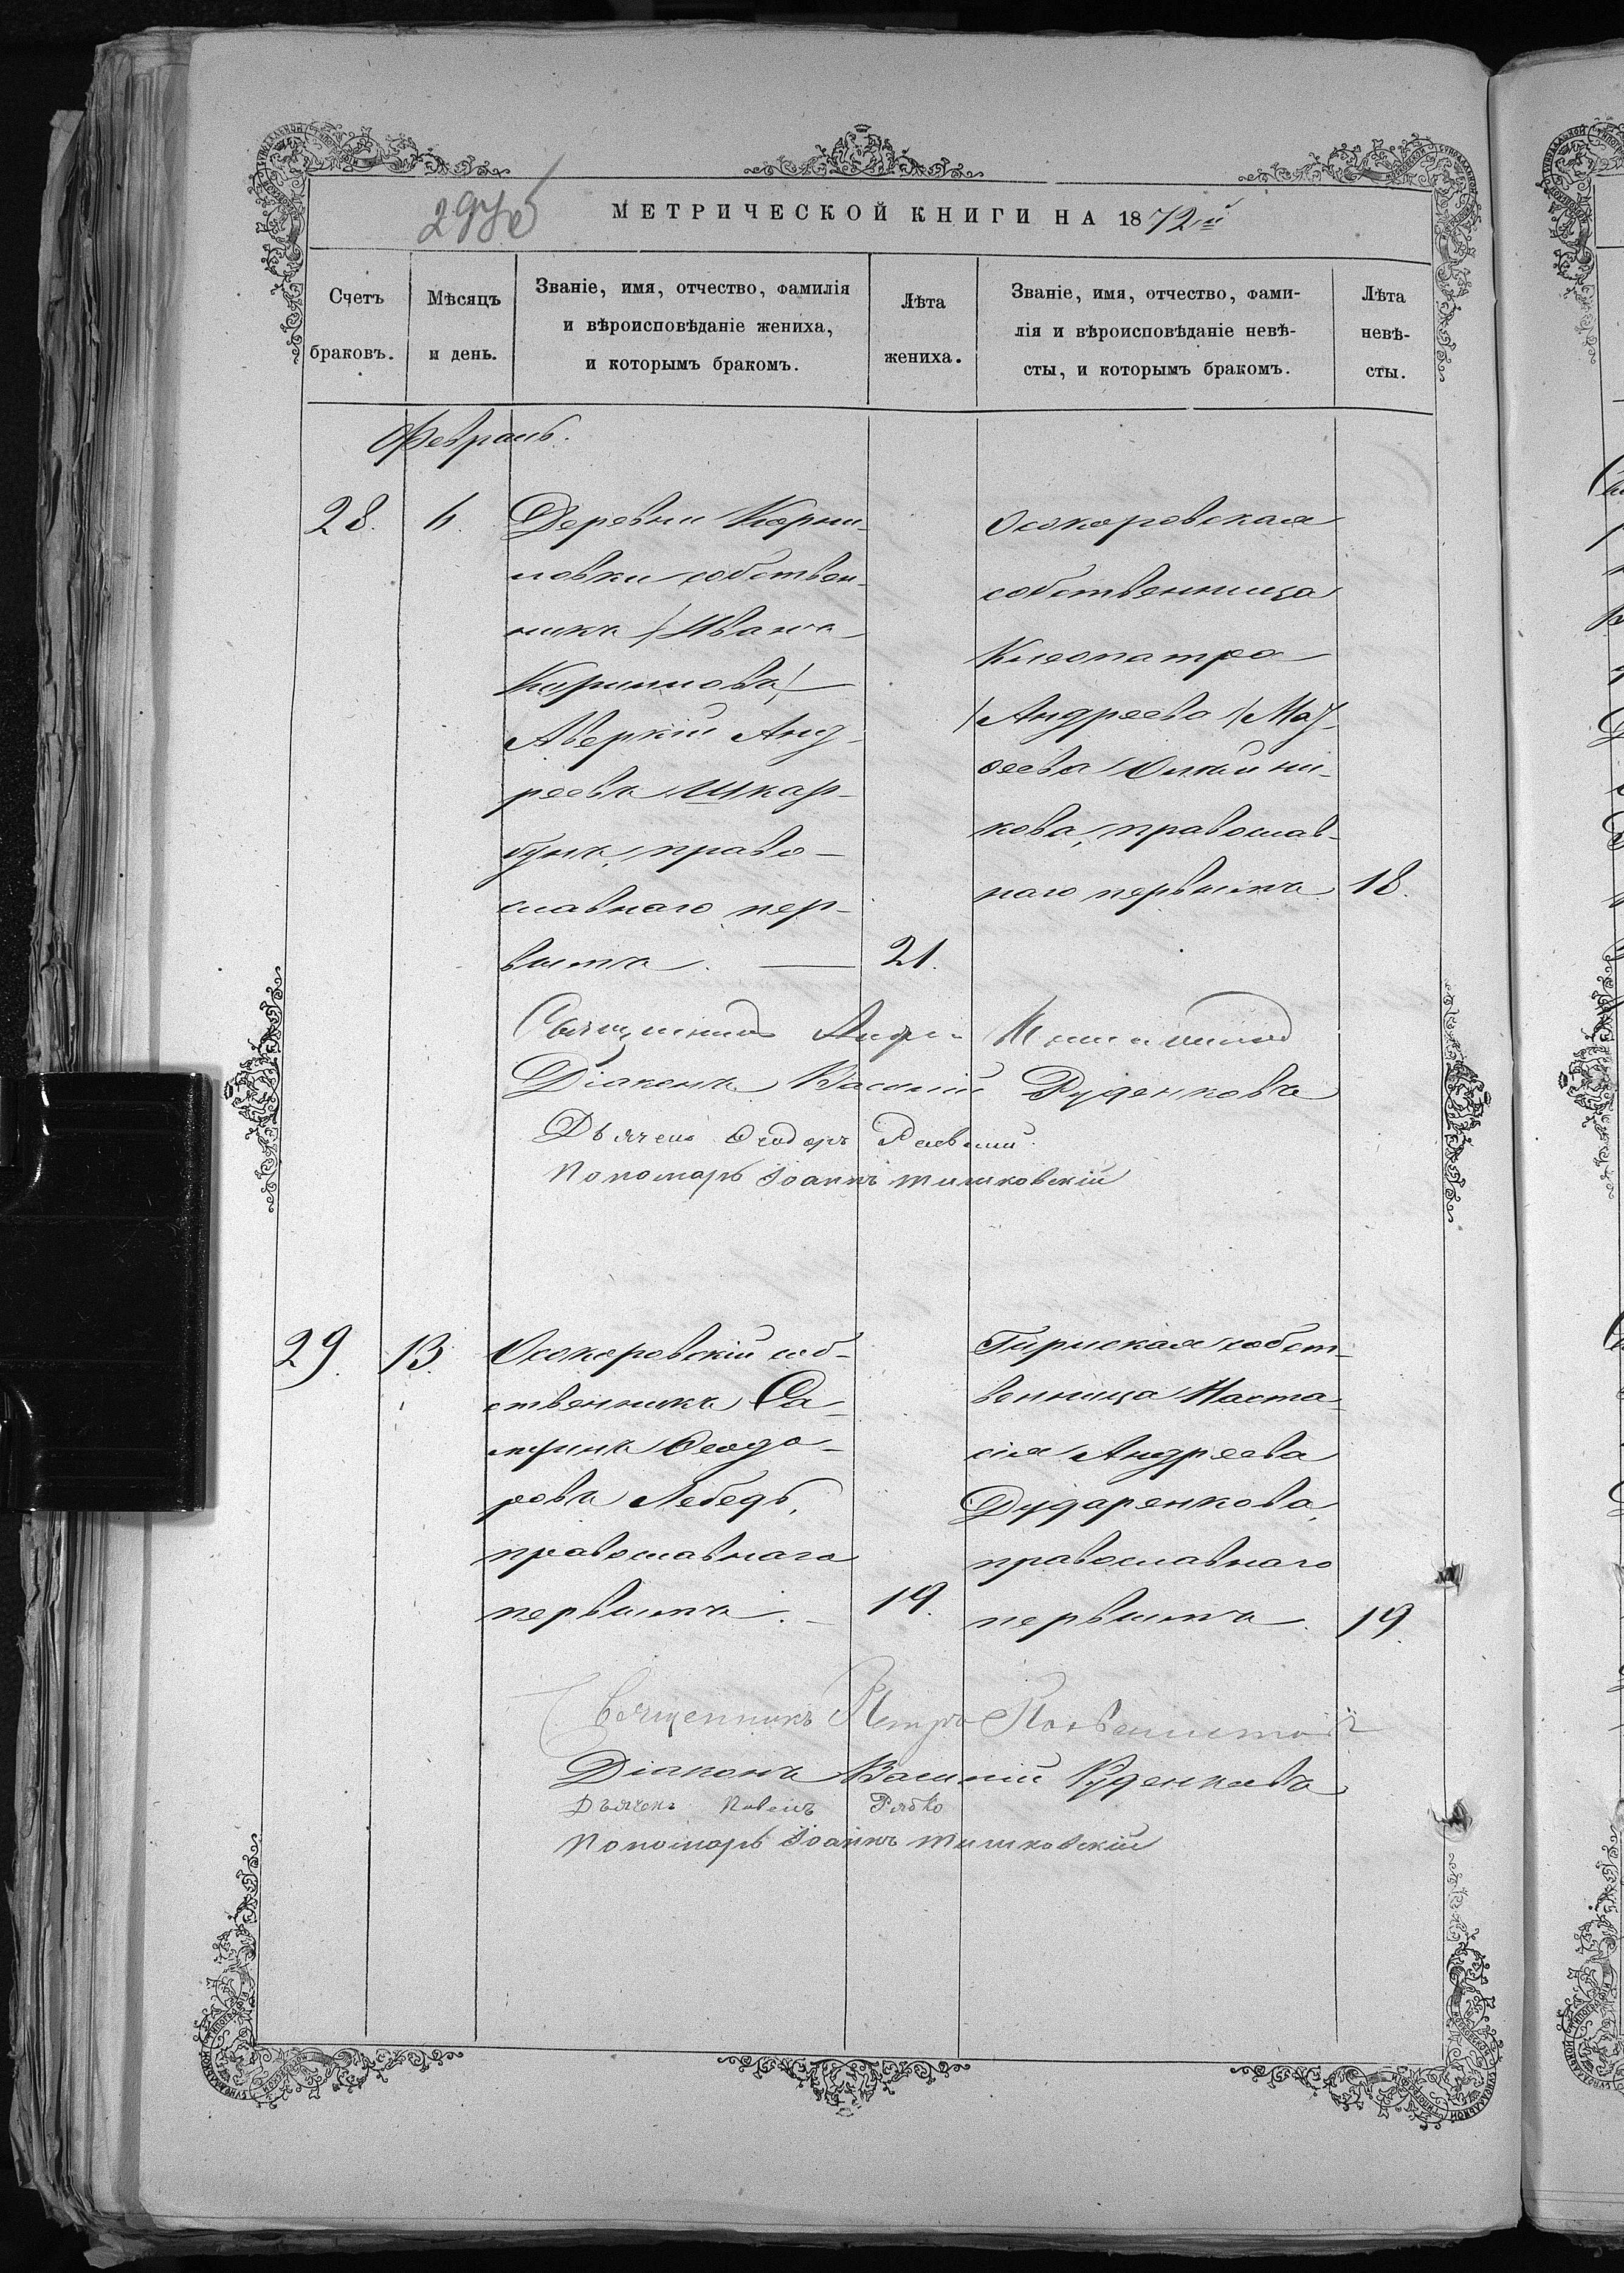 МЕТРИЧЕСКОЙ КНИГИ НА 1872й
Счетъ браковъ.
Мѣсяцъ и день.
Званіе, имя, отчество, фамилія
и вѣроисповѣданіе жениха,
и которымъ бракомъ.
Лѣта жениха.
Званіе, имя, отчество, фами-
лія и вѣроисповѣданіе невѣ-
сты, и которымъ бракомъ.
Лѣта невѣ-
сты.
Февраль.
28.
6.
Деревни Корни-
ловки собствен-
никъ /Ивана
Корнилова/
Аверкій Анд-
реевъ Шкар-
бунъ, право-
славнаго пер-
вымъ.
21.
Осокоровская
собственница
Клеопатра
/Андреева/
кова, православ-
наго первымъ
18.
Священникъ
Діаконъ Василій Руденковъ
Дьячекъ Ѳеодоръ
Пономарь Іоаннъ Тишковскій
29.
13.
Осокоровскій соб-
ственникъ Са-
муилъ Ѳеодо-
ровъ Лебедь,
православнаго
первымъ.
19.
собст-
венница Наста-
сія Андреева
Дударенкова,
православнаго
первымъ.
19.
Священникъ Петръ
Діаконъ Василій Руденковъ
Дьячекъ Павелъ Рябко
Пономарь Іоаннъ Тишковскій